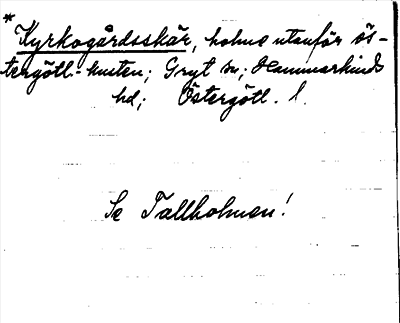 * Kyrkogårdsskär, holme utanför ös-
tergötl.-kusten; Gryt sn; Hammarkinds
hd; Östergötl. l.
Se Tallholmen!